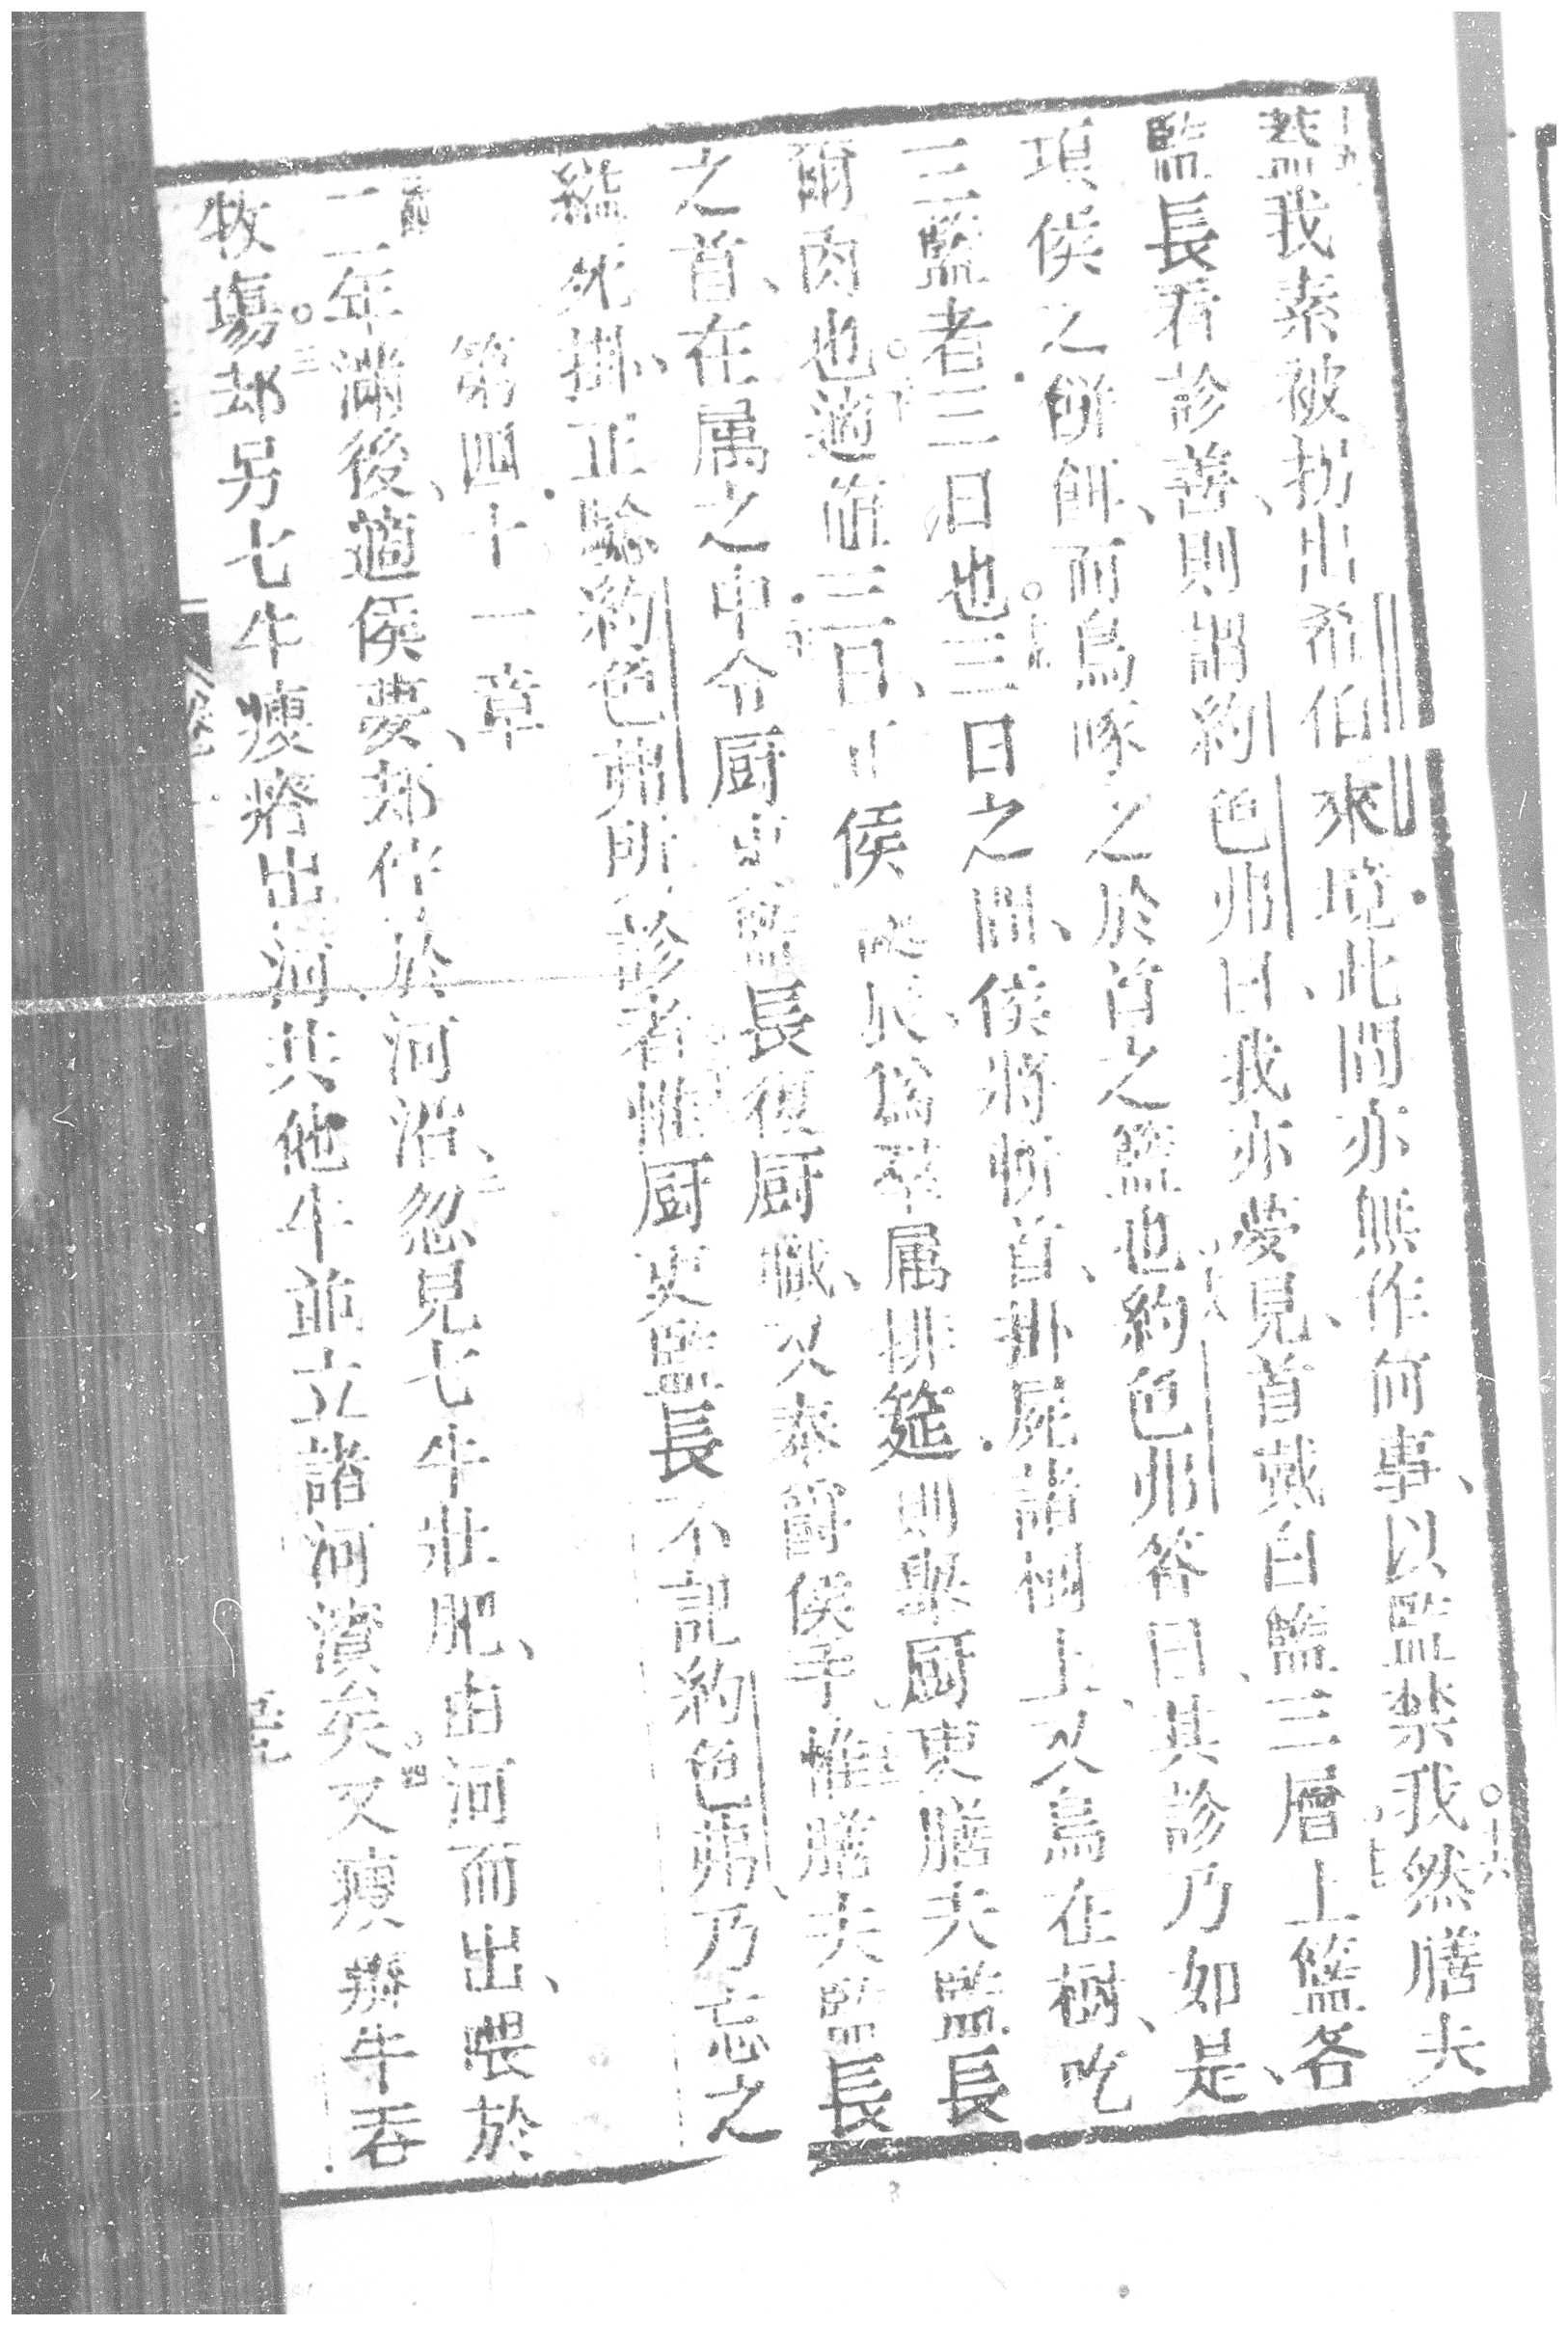 葢我素被拐出希伯來境此間亦無作何事以監禁我然膳夫
監長看診善則謂約色弗曰我亦夢見首戴白籃三層上籃各
項侯之餅餌而鳥啄之於首之籃也約色弗答曰其診乃如是
三籃者三日也三日之間侯將斬首掛屍諸樹上又鳥在樹吃
爾肉也適值三日 侯 長為羣属排筵則聚厨吏膳夫監長
之首在属之中令厨吏監長復厨職又奉爵侯手惟膳夫監長
縊死掛正騐約色弗所診者惟厨吏監長不記約色弗乃忘之
第四十一章
二年滿後適侯夢却伴於河沿忽見七牛壯肥由河而出喂於
牧塲却另七牛瘦瘠出河共他牛並立諸河濱矣又瘦瘠牛吞